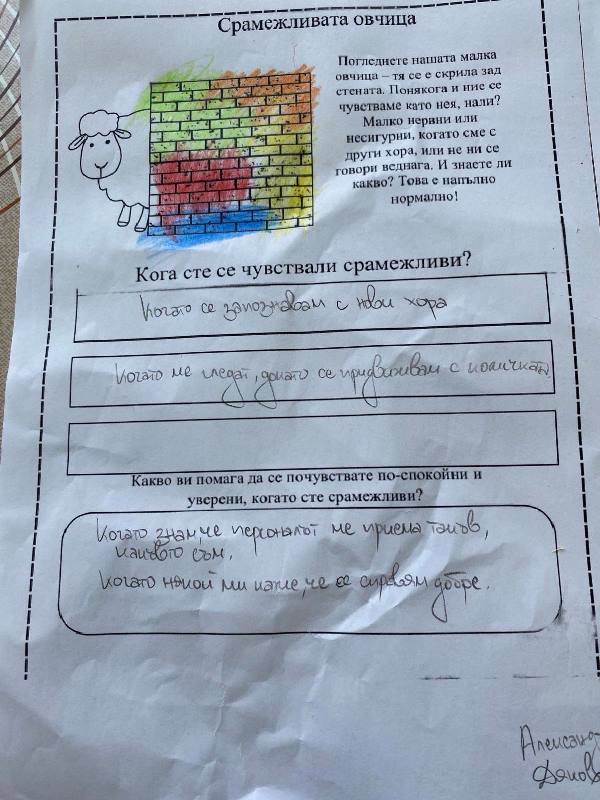 Срамежливата овчица
Погледнете нашата малка
овчица – тя се е скрила зад
стената. Понякога и ние се
чувстваме като нея, нали?
Малко нервни или
несигурни, когато сме с
други хора, или не ни се
говори веднага. И знаете ли
какво? Това е напълно
нормално!
Кога сте се чувствали срамежливи?
Когато се запознавам с нови хора
Когато ме гледат, докато се придвижвам с количката
Какво ви помага да се почувствате по-спокойни и
уверени, когато сте срамежливи?
Когато знам че персоналът ме приема такъв,
какъвто съм.
Когато някой ми каже, че се справям добре.
Александ
Дяков